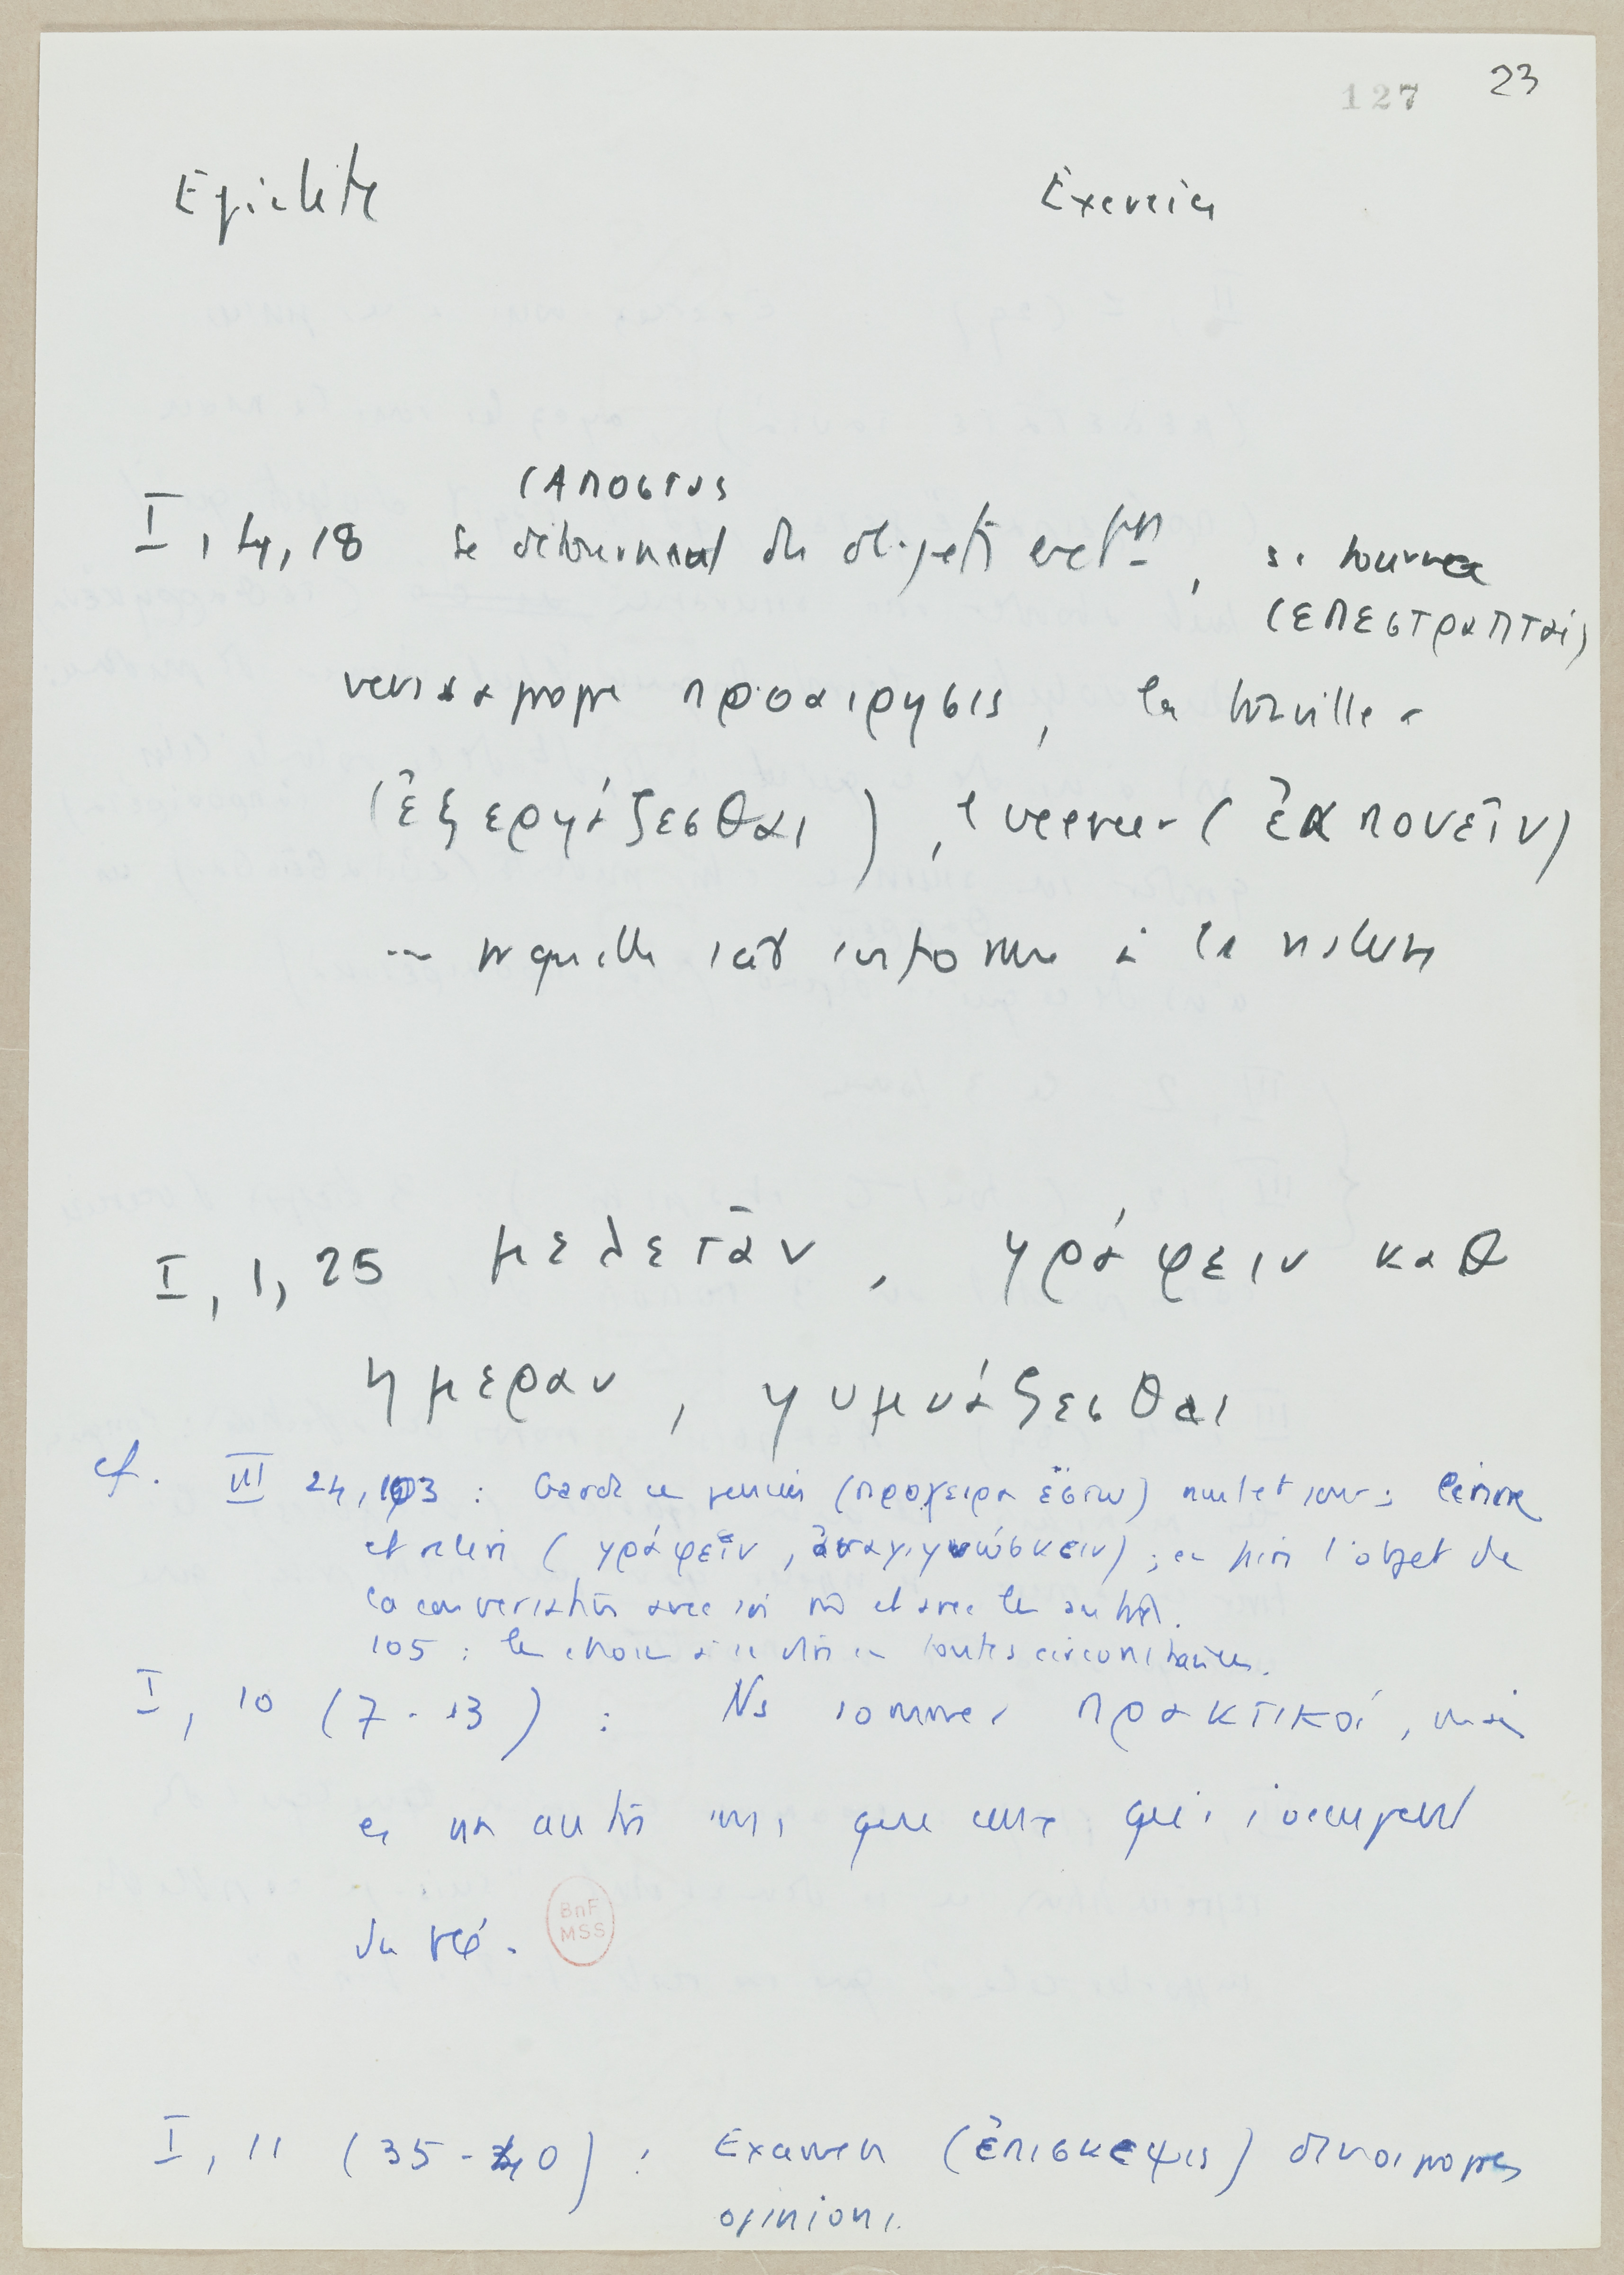 127 23
Epictete Exercices
(ΑΠΟΣΤΑΣ
I, 4, 18 se détournant des objets extrs, se tourner
(ΕΠΕΣΤΡΑΠΤΑΙ)
vers sa propre προαιρησις, la travailler
(ἐξεργάζεσθαι), l'exercer (ἐκπονεῖν)
... pr qu'elle soit conforme à la nature
I, 1, 25 μελετᾶν, γράφειν καθ
ημεραν, γυμνάζεσθαι
cf. III 24, 103 : Garde ces pensées (προχειρα ἔστω) nuit et jour; écrire
et relire (γράφεῖν, ἀναγιγνώσκειν); en faire l'objet de
la conversation avec soi m et avec les autres.
105 : les choses à se dire en toutes circonstances.
I, 10 (7-13) : Ns sommes πρακτικοί, mais
en un autre sens que ceux qui s'occupent
du
BnF
MSS
I, 11 (35-40) : Examen (ἐπισκεψις) de nos propres
opinions.